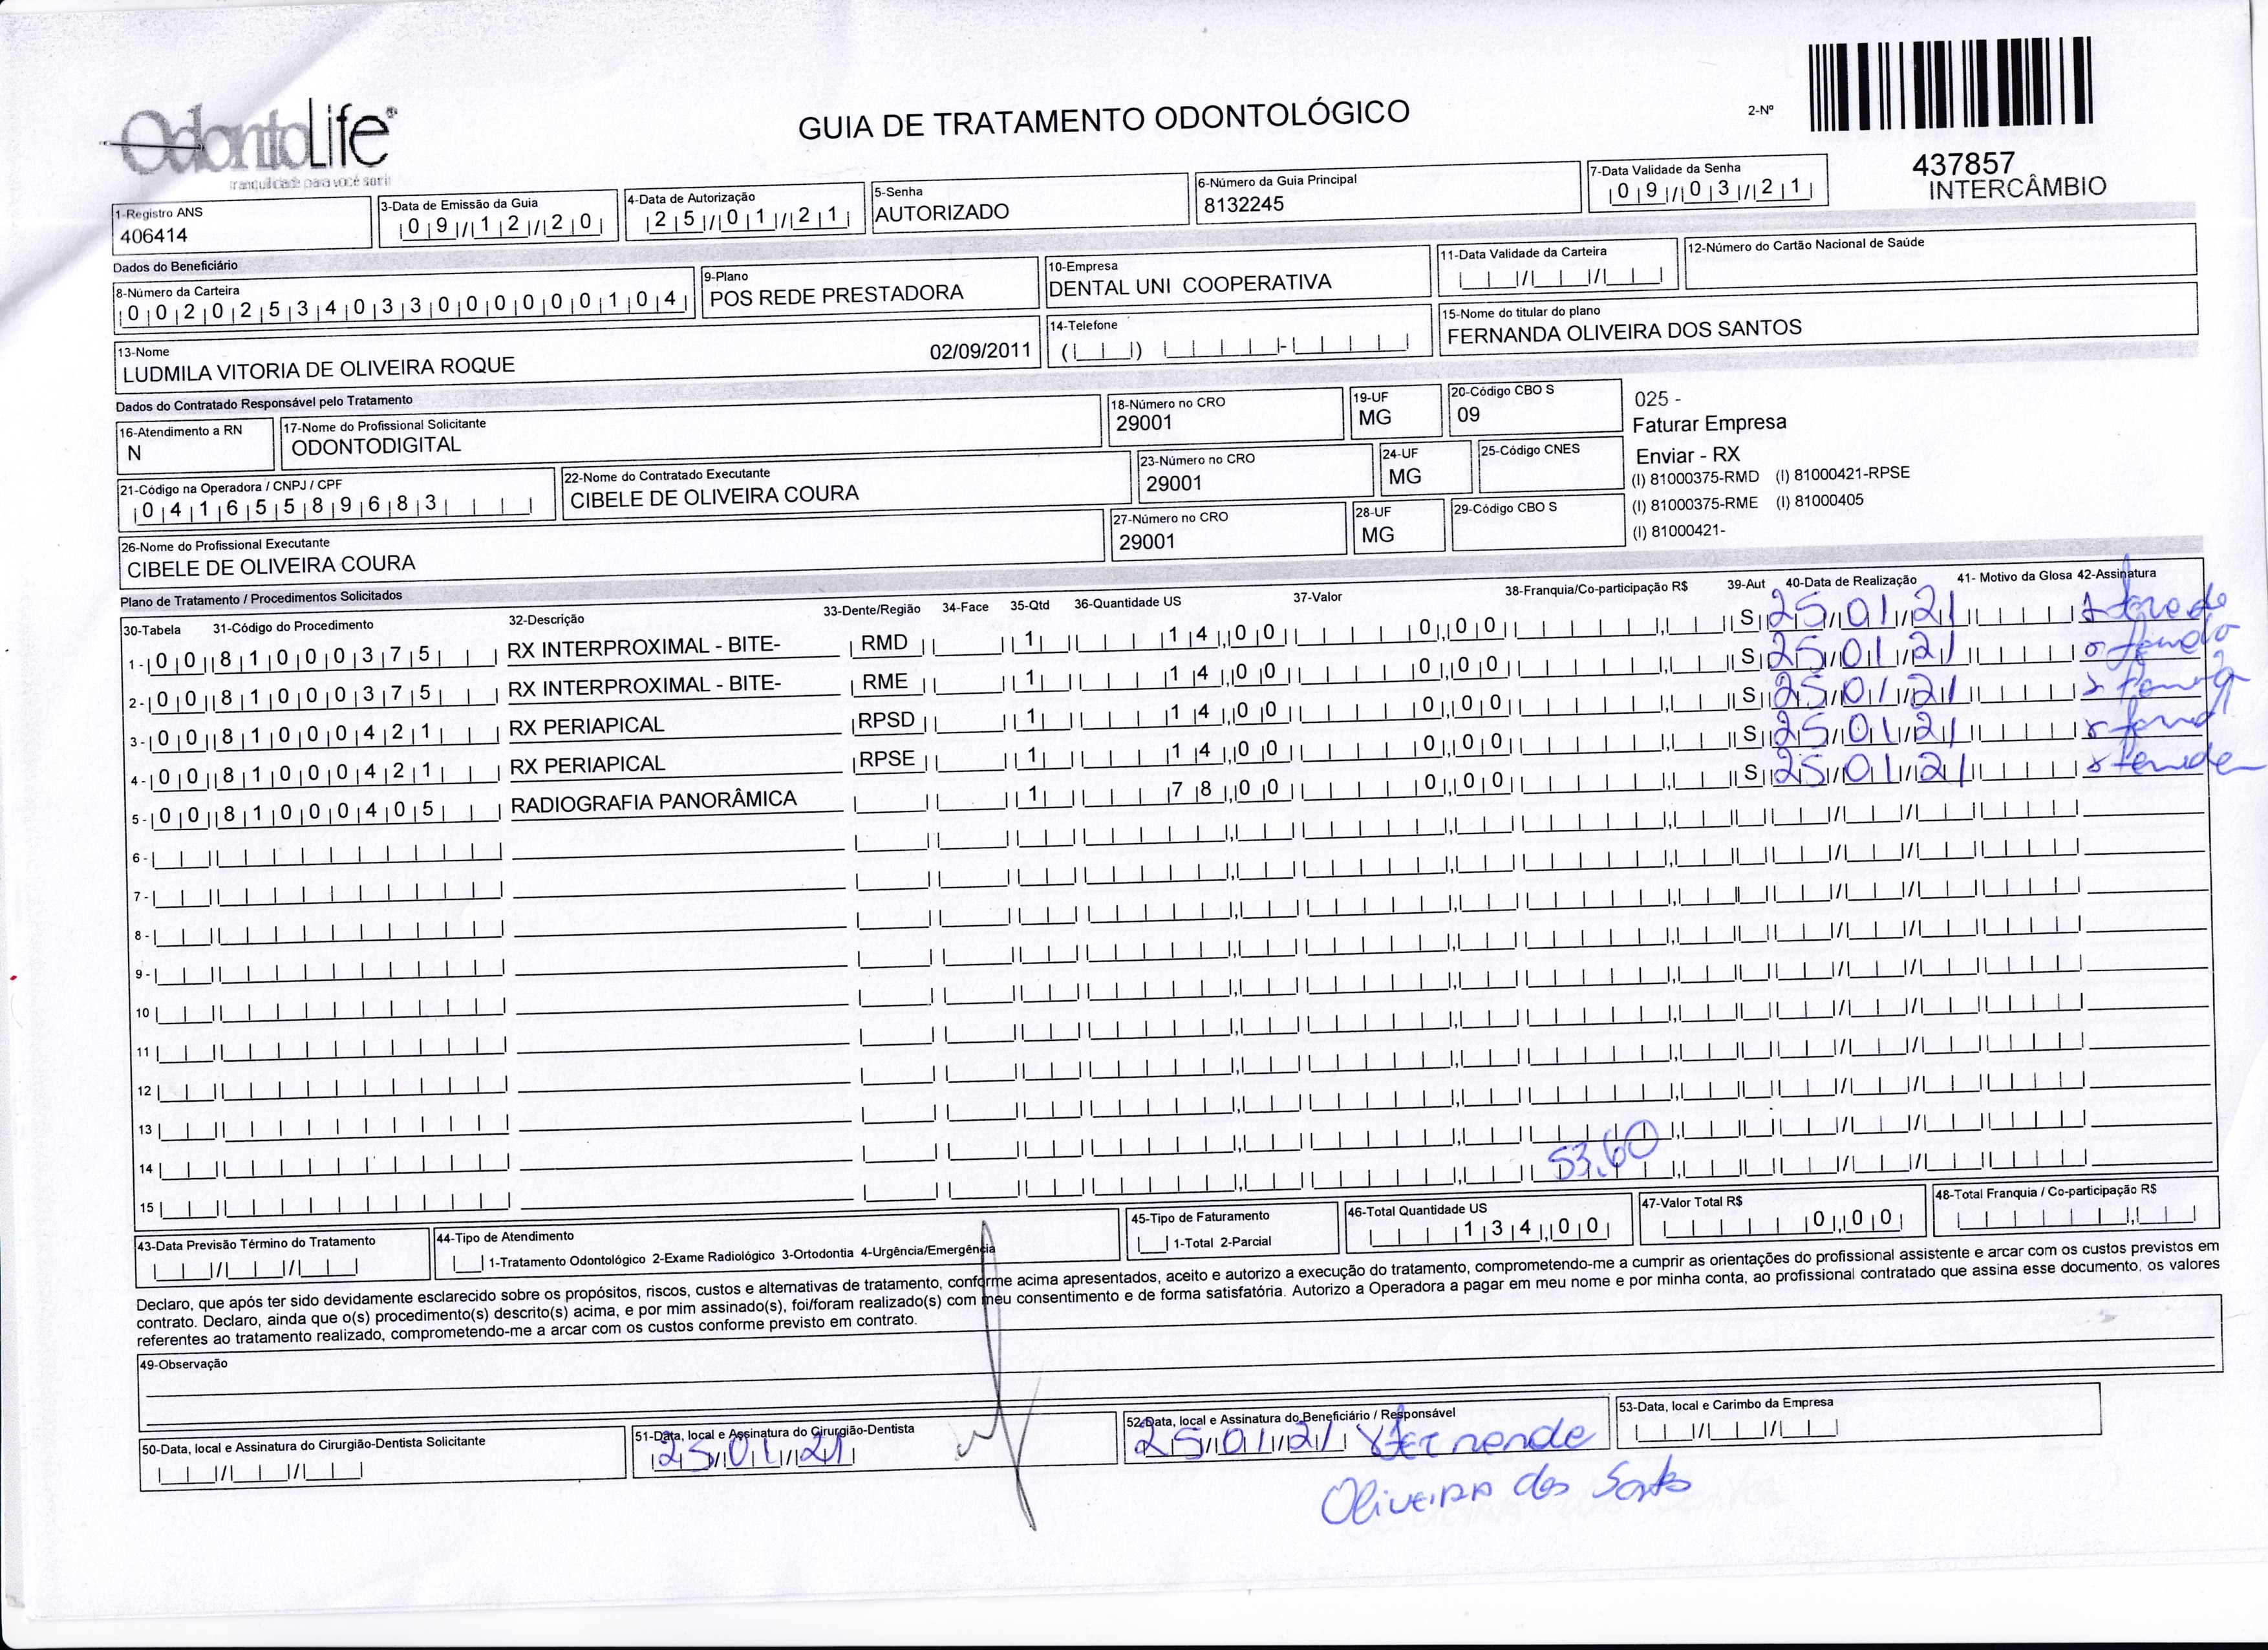 OdontoLife®
tranquilidade para você sorrir
GUIA DE TRATAMENTO ODONTOLÓGICO
2-Nº
437857
INTERCÂMBIO
1-Registro ANS
406414
3-Data de Emissão da Guia
09/12/20
4-Data de Autorização
25/01/21
5-Senha
AUTORIZADO
6-Número da Guia Principal
8132245
7-Data Validade da Senha
09/03/21
Dados do Beneficiário
8-Número da Carteira
00202534033000000104
9-Plano
POS REDE PRESTADORA
10-Empresa
DENTAL UNI COOPERATIVA
11-Data Validade da Carteira
12-Número do Cartão Nacional de Saúde
13-Nome
LUDMILA VITORIA DE OLIVEIRA ROQUE 02/09/2011
14-Telefone
15-Nome do titular do plano
FERNANDA OLIVEIRA DOS SANTOS
Dados do Contratado Responsável pelo Tratamento
16-Atendimento a RN
N
17-Nome do Profissional Solicitante
ODONTODIGITAL
18-Número no CRO
29001
19-UF
MG
20-Código CBO S
09
025 -
Faturar Empresa
Enviar - RX
(I) 81000375-RMD (I) 81000421-RPSE
(I) 81000375-RME (I) 81000405
(I) 81000421-
21-Código na Operadora / CNPJ / CPF
04165589683
22-Nome do Contratado Executante
CIBELE DE OLIVEIRA COURA
23-Número no CRO
29001
24-UF
MG
25-Código CNES
26-Nome do Profissional Executante
CIBELE DE OLIVEIRA COURA
27-Número no CRO
29001
28-UF
MG
29-Código CBO S
Plano de Tratamento / Procedimentos Solicitados
30-Tabela 31-Código do Procedimento 32-Descrição 33-Dente/Região 34-Face 35-Qtd 36-Quantidade US 37-Valor 38-Franquia/Co-participação R$ 39-Aut 40-Data de Realização 41- Motivo da Glosa 42-Assinatura
1- 00 81000375 RX INTERPROXIMAL - BITE- RMD 1 14,00 0,00 S 25/01/21
2- 00 81000375 RX INTERPROXIMAL - BITE- RME 1 14,00 0,00 S 25/01/21
3- 00 81000421 RX PERIAPICAL RPSD 1 14,00 0,00 S 25/01/21
4- 00 81000421 RX PERIAPICAL RPSE 1 14,00 0,00 S 25/01/21
5- 00 81000405 RADIOGRAFIA PANORÂMICA 1 78,00 0,00 S 25/01/21
6-
7-
8-
9-
10
11
12
13
14
15
53,60
43-Data Previsão Término do Tratamento
44-Tipo de Atendimento
1-Tratamento Odontológico 2-Exame Radiológico 3-Ortodontia 4-Urgência/Emergência
45-Tipo de Faturamento
1-Total 2-Parcial
46-Total Quantidade US
134,00
47-Valor Total R$
0,00
48-Total Franquia / Co-participação R$
Declaro, que após ter sido devidamente esclarecido sobre os propósitos, riscos, custos e alternativas de tratamento, conforme acima apresentados, aceito e autorizo a execução do tratamento, comprometendo-me a cumprir as orientações do profissional assistente e arcar com os custos previstos em
contrato. Declaro, ainda que o(s) procedimento(s) descrito(s) acima, e por mim assinado(s), foi/foram realizado(s) com meu consentimento e de forma satisfatória. Autorizo a Operadora a pagar em meu nome e por minha conta, ao profissional contratado que assina esse documento, os valores
referentes ao tratamento realizado, comprometendo-me a arcar com os custos conforme previsto em contrato.
49-Observação
50-Data, local e Assinatura do Cirurgião-Dentista Solicitante
51-Data, local e Assinatura do Cirurgião-Dentista
25/01/21
52-Data, local e Assinatura do Beneficiário / Responsável
25/01/21 x Fernende
Oliveira dos Santos
53-Data, local e Carimbo da Empresa